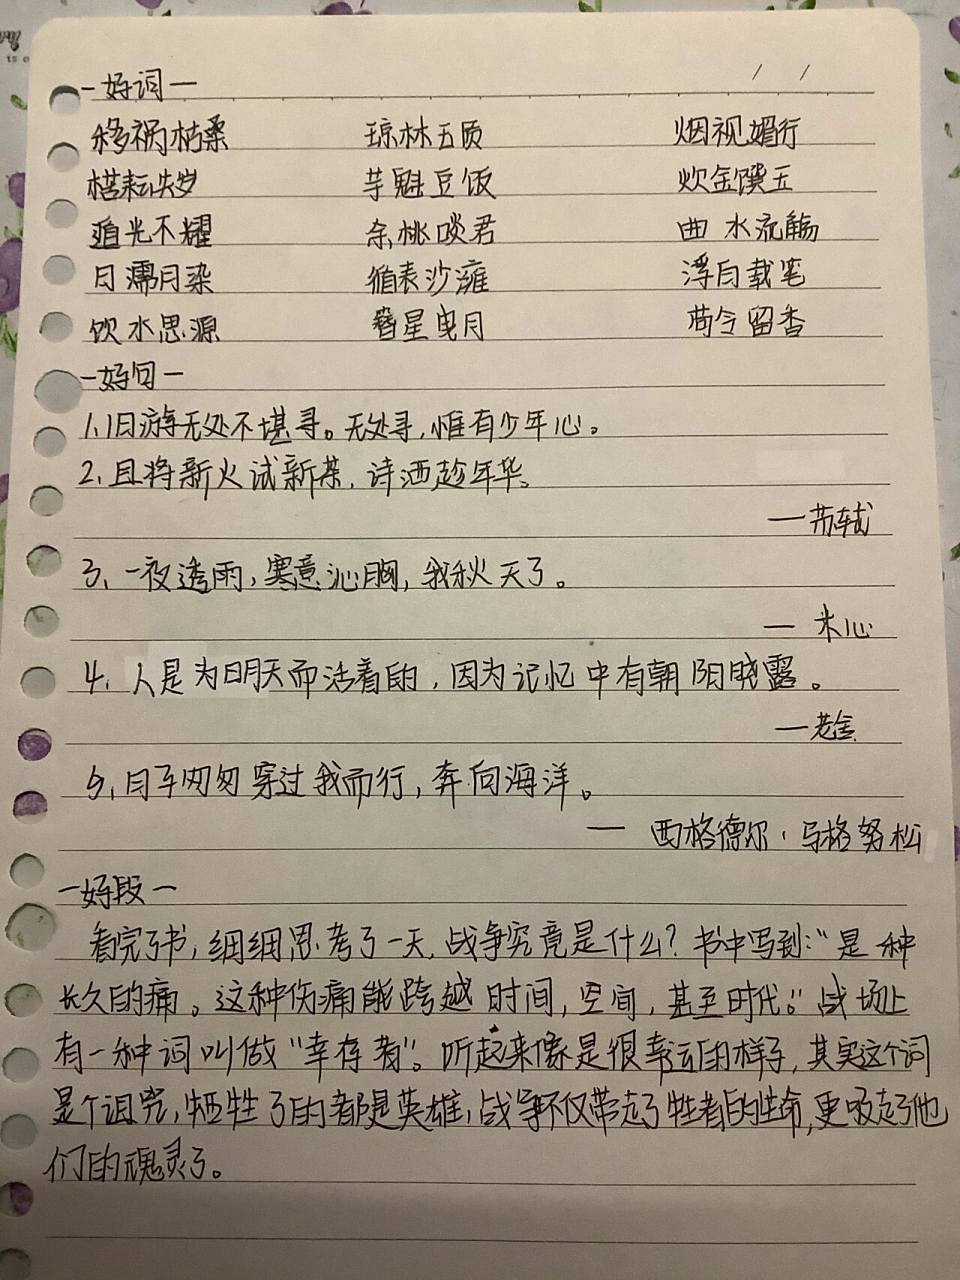 一好词一
移祸枯桑 琼林玉质 烟视媚行
楛耘失岁 芋魁豆饭 炊金馔玉
追光不耀 余桃啖君 曲水流觞
日濡月染 循表沙 浮白载笔
饮水思源 彗星曳月 荀令留香
一好句一
1.旧游无处不堪寻。无处寻,惟有少年心。
2.且将新火试新茶,诗酒趁年华。
—苏轼
3.一夜透雨,寒意沁胸,我秋天了。
— 米心
4.人是为明天而活着的,因为记忆中有朝阳晓露。
—老舍
5.日子匆匆穿过我而行,奔向海洋。
— 西格德尔·马格努松
一好段一
看完了书,细细思考了一天,战争究竟是什么?书中写到:“是一种
长久的痛。这种伤痛能跨越时间,空间,甚至时代。”战场上
有一种词叫做“幸存者”。听起来像是很幸运的样子,其实这个词
是个诅咒,牺牲了的都是英雄,战争不仅带走了牲者的生命,更吸走了他
们的魂灵了。